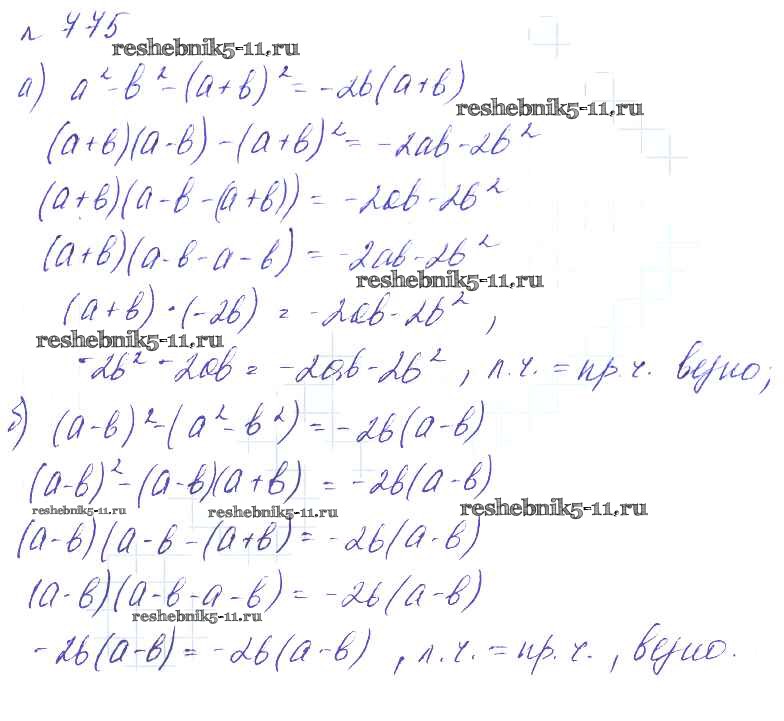 № 775
reshebnik5-11.ru
а) a² - b² - (a+b)² = -2b(a+b)
reshebnik5-11.ru
(a+b)(a-b) - (a+b)² = -2ab - 2b²
(a+b)(a-b-(a+b)) = -2ab - 2b²
(a+b)(a-b-a-b) = -2ab - 2b²
reshebnik5-11.ru
(a+b)·(-2b) = -2ab - 2b²,
reshebnik5-11.ru
-2b² - 2ab = -2ab - 2b², л.ч. = пр.ч. верно;
б) (a-b)² - (a² - b²) = -2b(a-b)
(a-b)² - (a-b)(a+b) = -2b(a-b)
reshebnik5-11.ru reshebnik5-11.ru reshebnik5-11.ru
(a-b)(a-b-(a+b) = -2b(a-b)
(a-b)(a-b-a-b) = -2b(a-b)
reshebnik5-11.ru
-2b(a-b) = -2b(a-b), л.ч. = пр.ч., верно.